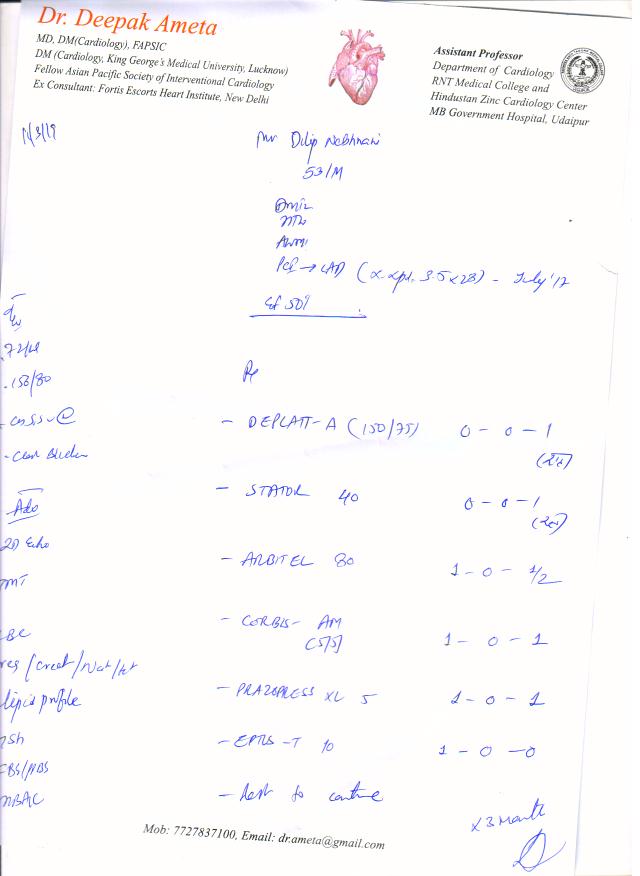 Dr. Deepak Ameta
MD, DM(Cardiology), FAPSIC
DM (Cardiology, King George's Medical University, Lucknow)
Fellow Asian Pacific Society of Interventional Cardiology
Ex Consultant: Fortis Escorts Heart Institute, New Delhi
Assistant Professor
Department of Cardiology
RNT Medical College and
Hindustan Zinc Cardiology Center
MB Government Hospital, Udaipur
/3/19
Mr Dilip
53/M
AWMI
PCI → LAD ( 3.5 x 28) - July '17
EF 50%
72/M
150/80
Rx
- DEPLATT-A (150/75) 0 - 0 - 1
- STATOR 40 0 - 0 - 1
Adv
2D Echo
- ARBITEL 80 1 - 0 - 1/2
TMT
- CORBIS- AM 1 - 0 - 1
(5/5)
CBC
/Creat/Na+/K+
- PRAZOPRESS XL 5 1 - 0 - 1
lipid profile
- EPTUS -T 10 1 - 0 - 0
TSH
FBS/
- Rest to continue
HBA1C
x 3 Month
Mob: 7727837100, Email: dr.ameta@gmail.com